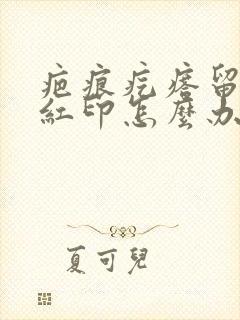 疤痕疙瘩留
紅印怎麼办
夏可兒